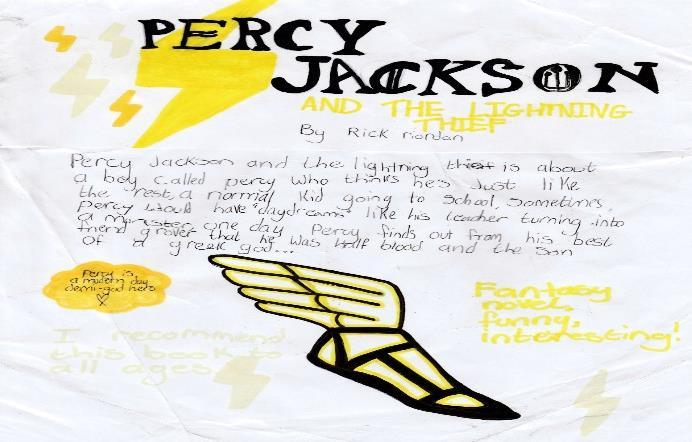 PERCY
JACKSON
AND THE LIGHTNING
THIEF
By Rick riordan
Percy Jackson and the lightning thief is about
a boy called percy who thinks hes Just like
the rest, a normal kid going to school, sometimes,
percy would have "daydreams" like his teacher turning into
a monster one day Percy finds out from his best
friend grover that he was half blood and the son
of a greek god...
Percy is
a modern day
demi-god hero
I recommend
this book to
all ages
Fantasy
novel,
funny,
interesting!